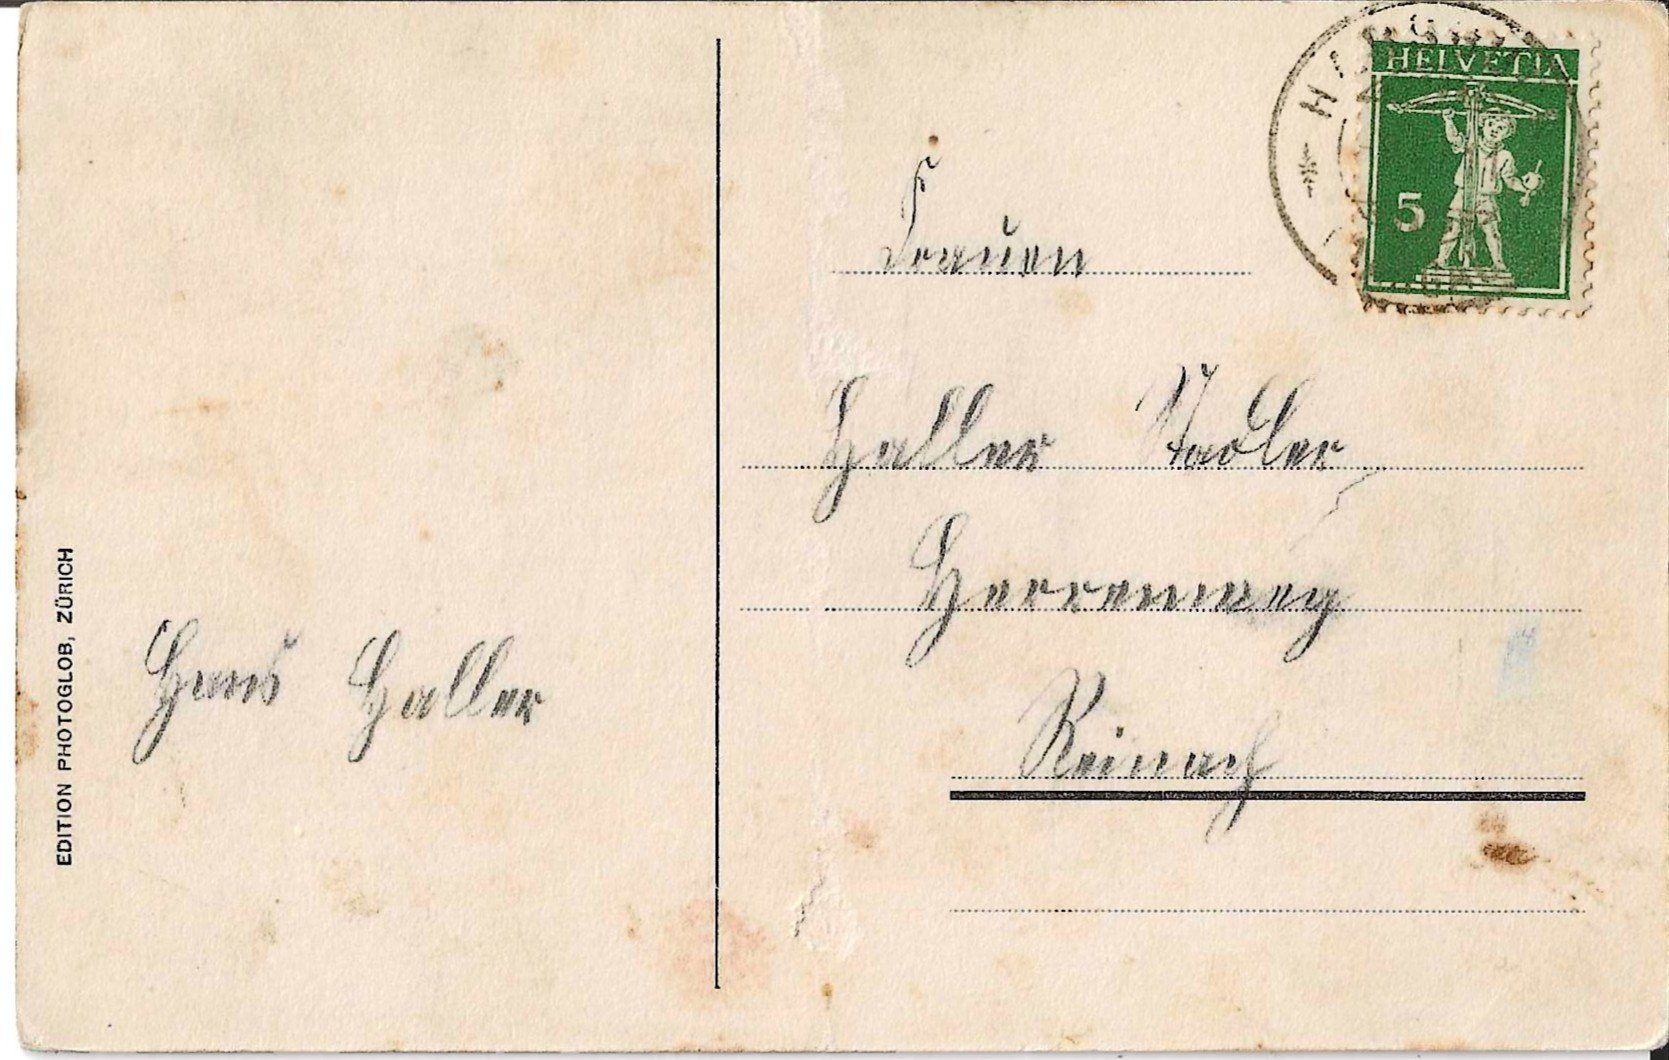 EDITION PHOTOGLOB, ZÜRICH
Hans Haller
HELVETIA
5
Frauen
Haller Stadler
Herrenweg
Reinach